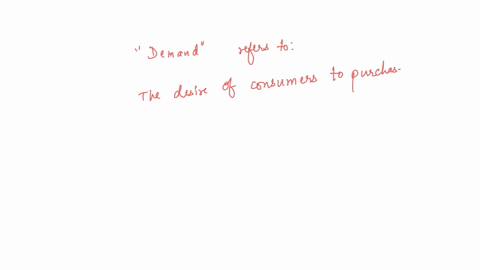 "Demand" refers to:
The desire of consumers to purchas.